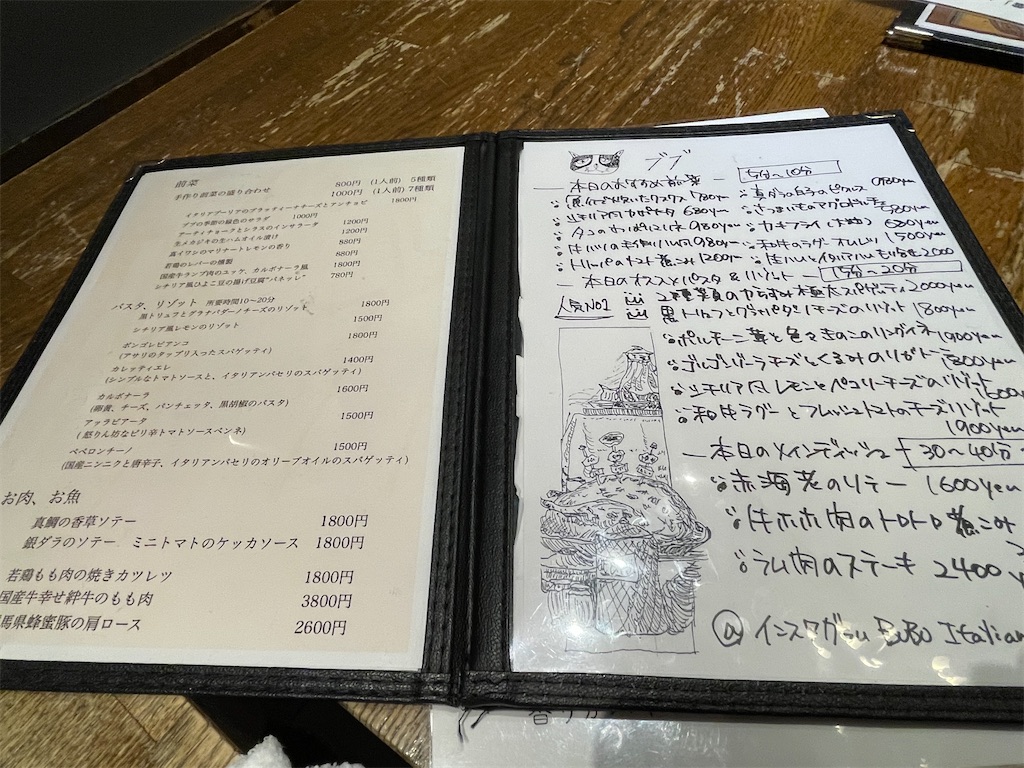 前菜
手作り前菜の盛り合わせ 800円 (1人前) 5種類
1000円 (1人前) 7種類
イタリアプーリアのブラッティーナチーズとアンチョビ 1800円
ブブの季節の緑色のサラダ 1000円
アーティチョークとシラスのインサラータ 1200円
生メカジキの生ハムオイル漬け 1200円
真イワシのマリナートレモンの香り 880円
若鶏のレバーの燻製 880円
国産牛ランプ肉のユッケ、カルボナーラ風 1800円
シチリア風ひよこ豆の揚げ豆腐"パネッレ" 780円
パスタ、リゾット 所要時間10〜20分
黒トリュフとグラナパダーノチーズのリゾット 1800円
シチリア風レモンのリゾット 1500円
ボンゴレビアンコ 1800円
(アサリのタップリ入ったスパゲッティ)
カレッティエレ 1400円
(シンプルなトマトソースと、イタリアンパセリのスパゲッティ)
カルボナーラ 1600円
(卵黄、チーズ、パンチェッタ、黒胡椒のパスタ)
アッラビアータ 1500円
(怒りん坊なピリ辛トマトソースペンネ)
ペペロンチーノ 1500円
(国産ニンニクと唐辛子、イタリアンパセリのオリーブオイルのスパゲッティ)
お肉、お魚
真鯛の香草ソテー 1800円
銀ダラのソテー ミニトマトのケッカソース 1800円
若鶏もも肉の焼きカツレツ 1800円
国産牛幸せ絆牛のもも肉 3800円
馬県蜂蜜豚の肩ロース 2600円
ブブ
5分〜10分
本日のおすすめ前菜
780yen
シチリア風カポナータ 680yen
980yen
980yen
トリッパのトマト煮こみ 1200yen
980yen
580yen
カキフライ 680yen
和牛のラグーオムレツ 1500yen
2000
本日のオススメパスタ&リゾット
15分〜20分
人気NO1 2種類のからすみ極太スパゲッティ 2000yen
黒トリュフとグラナパダーノチーズのリゾット 1800yen
ポルチーニ茸と色々きのこのリングイネ 1900yen
ゴルゴンゾーラチーズとくるみのリガトーニ 1800yen
シチリア風レモンとペコリーノチーズのリゾット 1600yen
和牛ラグーとフレッシュトマトのチーズリゾット
1900yen
本日のメインディッシュ 30〜40分
赤海老のソテー 1600yen
牛ホホ肉のトロトロ煮こみ
ラム肉のステーキ 2400
@インスタグラム BuBo Italian